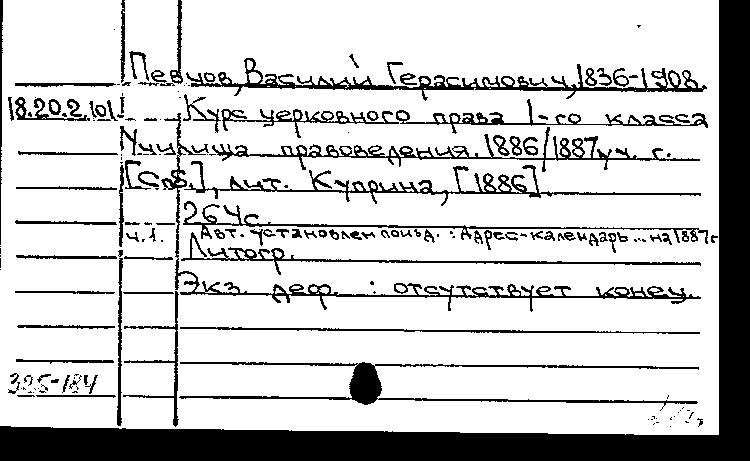 Певцов, Василий Герасимович, 1836-1908.
18.20.2.101. Курс церковного права 1-го класса
Училища правоведения. 1886/1887 уч. г.
[Спб.], лит. Куприна, [1886].
264с.
ч.1. Авт. установлен по изд.: Адрес-календарь... на 1887г
Литогр.
Экз. деф. : отсутствует конец.
325-184